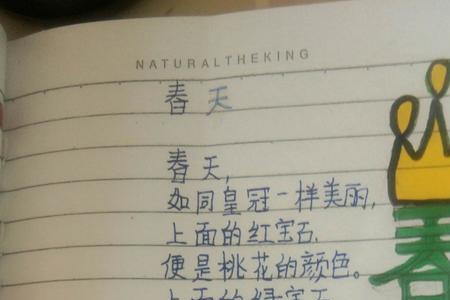 NATURALTHEKING
春天
春天,
如同皇冠一样美丽,
上面的红宝石
便是桃花的颜色。
上面的绿宝石
春